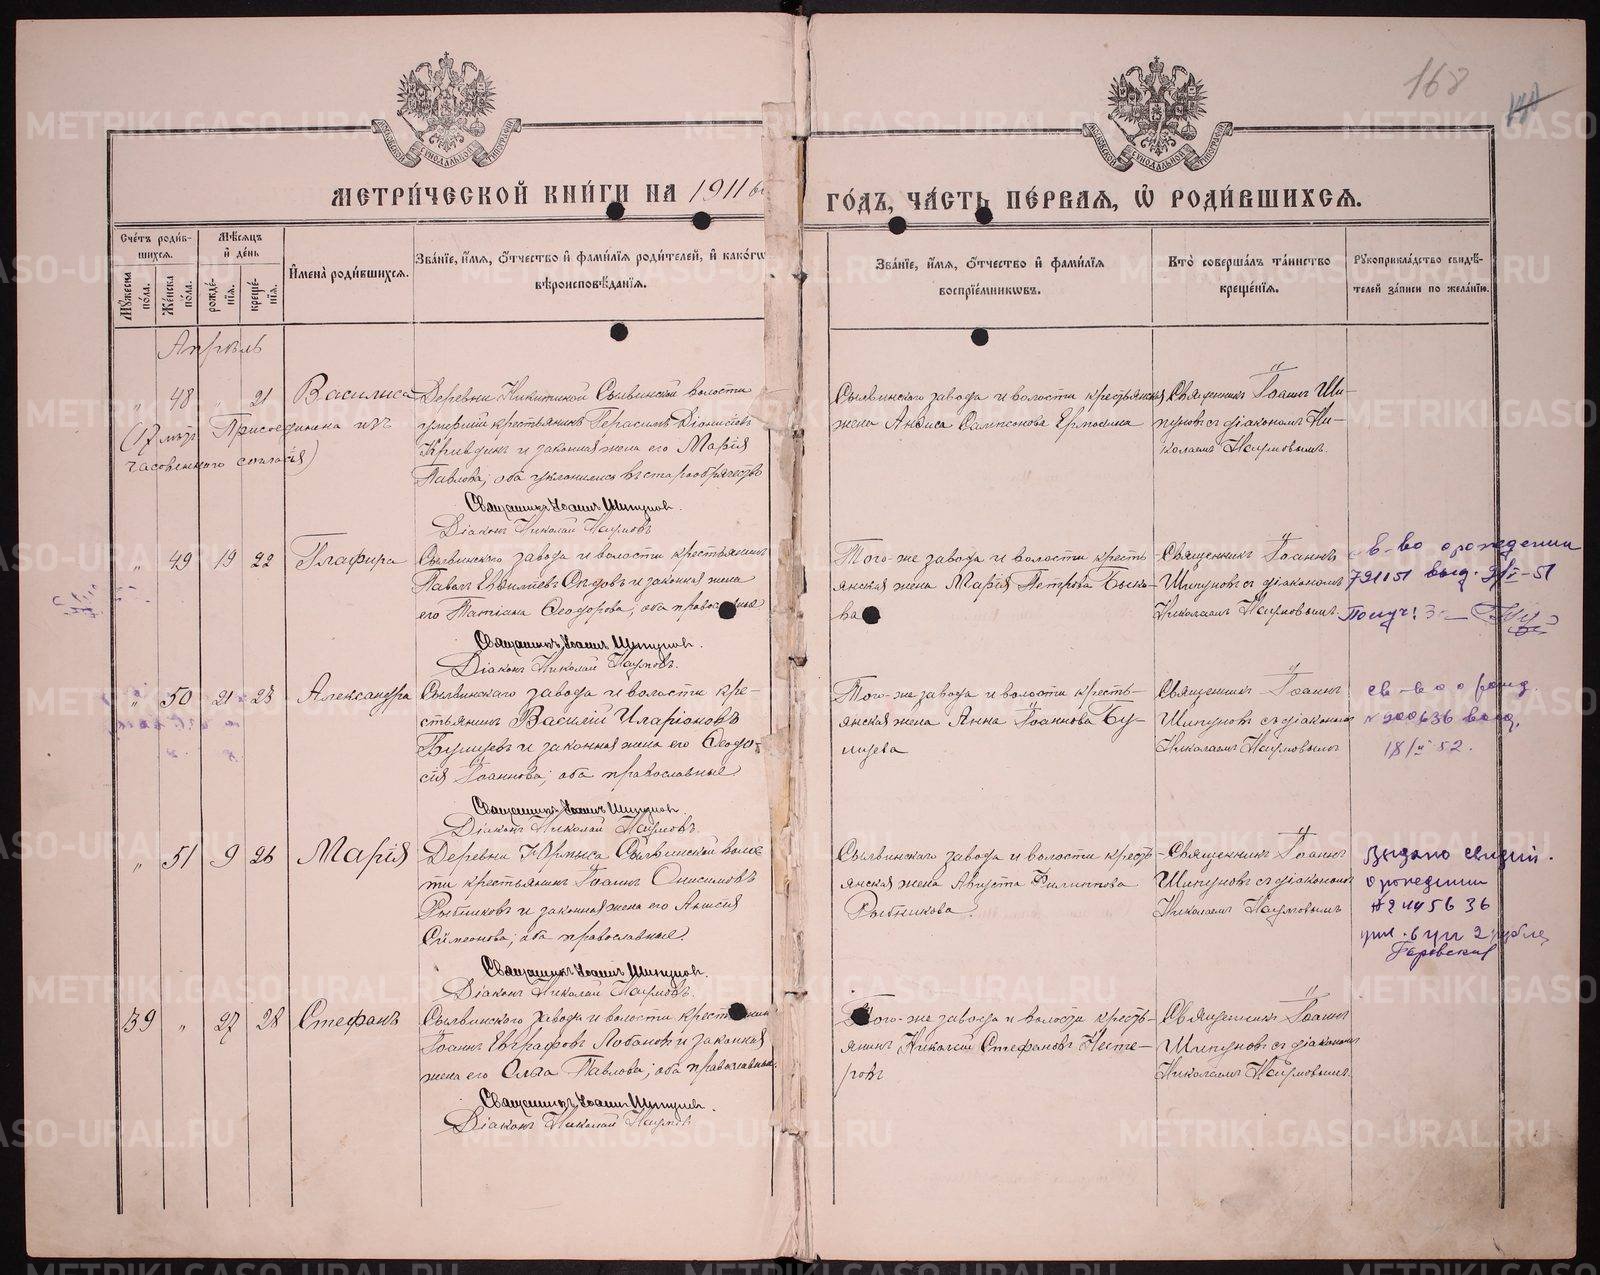 168
МОСКОВСКОЙ СѴНОДАЛЬНОЙ ТИПОГРАФІИ
МОСКОВСКОЙ СѴНОДАЛЬНОЙ ТИПОГРАФІИ
МЕТРИ́ЧЕСКОЙ КНИ́ГИ НА 1911й
ГО́ДЪ, ЧА́СТЬ ПЕ́РВАЯ, Ѡ҆ РОДИ́ВШИХСѦ.
Сче́тъ роди́в-
шихсѧ.
Мѹжеска
по́ла.
Же́нска
по́ла.
Мѣ́сѧцъ
и҆ де́нь
рожде́-
нїѧ.
креще́-
нїѧ.
И҆мена̀ роди́вшихсѧ.
Зва́нїе, и҆́мѧ, ѻ҆́тчество и҆ фами́лїѧ роди́телей, и҆ како́гѡ
вѣроисповѣ́данїѧ.
Зва́нїе, и҆́мѧ, ѻ҆́тчество и҆ фами́лїѧ
воспрїе́мникѡвъ.
Кто̀ соверша́лъ та́инство
креще́нїѧ.
Рꙋкоприкла́дство свидѣ́-
телей за́писи по жела́нїю.
Апрѣль
" 48 " 21 Василиса
(17 лѣтъ Присоединена изъ
часовеннаго согласія)
Деревни Никитиной Сывинской волости
умершій крестьянинъ Герасимъ Діонисіевъ
и законная жена его Марія
Павлова, оба уклонились въ старообрядчество
Священникъ Іоаннъ Шипуновъ.
Діаконъ Николай Наумовъ
Сылвинскаго завода и волости крестьянская
жена Анфиса Сампсонова
Священникъ Іоаннъ Ши-
пуновъ съ діакономъ Ни-
колаемъ Наумовымъ.
" 49 19 22 Глафира
Сылвинскаго завода и волости крестьянинъ
Павелъ Евѳиміевъ и законная жена
его Татіана Ѳеодорова, оба православные
Священникъ Іоаннъ Шипуновъ.
Діаконъ Николай Наумовъ.
Того-же завода и волости кресть
янская жена Марія Петрова Быко-
ва
Священникъ Іоаннъ
Шипуновъ съ діакономъ
Николаемъ Наумовымъ.
св-во о рождении
" 50 21 23 Александра
Сылвинскаго завода и волости кре-
стьянинъ Василій Иларіоновъ
и законная жена его Ѳеодо-
сія Іоаннова; оба православные
Священникъ Іоаннъ Шипуновъ.
Діаконъ Николай Наумовъ.
Того-же завода и волости кресть-
янская жена Анна Іоаннова
Священникъ Іоаннъ
Шипуновъ съ діакономъ
Николаемъ Наумовымъ
св-во о рожд.
№ 200636 выд.
18/II 52.
" 51 9 26 Марія
Деревни Сылвинской волос
ти крестьянинъ Іоаннъ Онисимовъ
Рыбниковъ и законная жена его Анисія
Симеонова; оба православные.
Священникъ Іоаннъ Шипуновъ.
Діаконъ Николай Наумовъ.
Сылвинскаго завода и волости кресть
янская жена Августа Филиппова
Рыбникова.
Священникъ Іоаннъ
Шипуновъ съ діакономъ
Николаемъ Наумовымъ
Выдано свидет.
о рождении
39 " 27 28 Стефанъ
Сылвинскаго завода и волости крестьянинъ
Іоаннъ Евграфовъ Лобановъ и законная
жена его Ольга Павлова; оба православные.
Священникъ Іоаннъ Шипуновъ.
Діаконъ Николай Наумовъ
Того-же завода и волости кресть-
янинъ Николай Стефановъ Несте-
ровъ
Священникъ Іоаннъ
Шипуновъ съ діакономъ
Николаемъ Наумовымъ.
METRIKI.GASO-URAL.RU